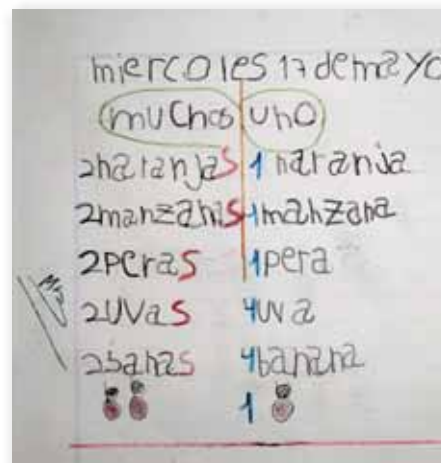 miercoles 17 de mayo
muchos uno
2 naranjas 1 naranja
2 manzanas 1 manzana
2 peras 1 pera
2 uvas 4 uva
2 banas 4 banana
1